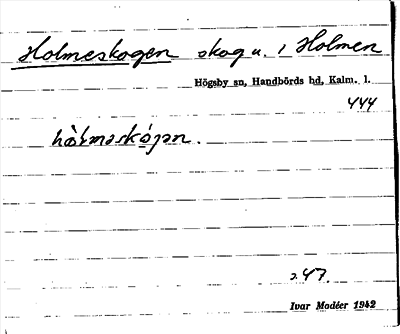 Holmeskogen skog u. 1 Holmen
Högsby sn, Handbörds hd, Kalm. l.
444
s. 47.
Ivar Modéer 1942